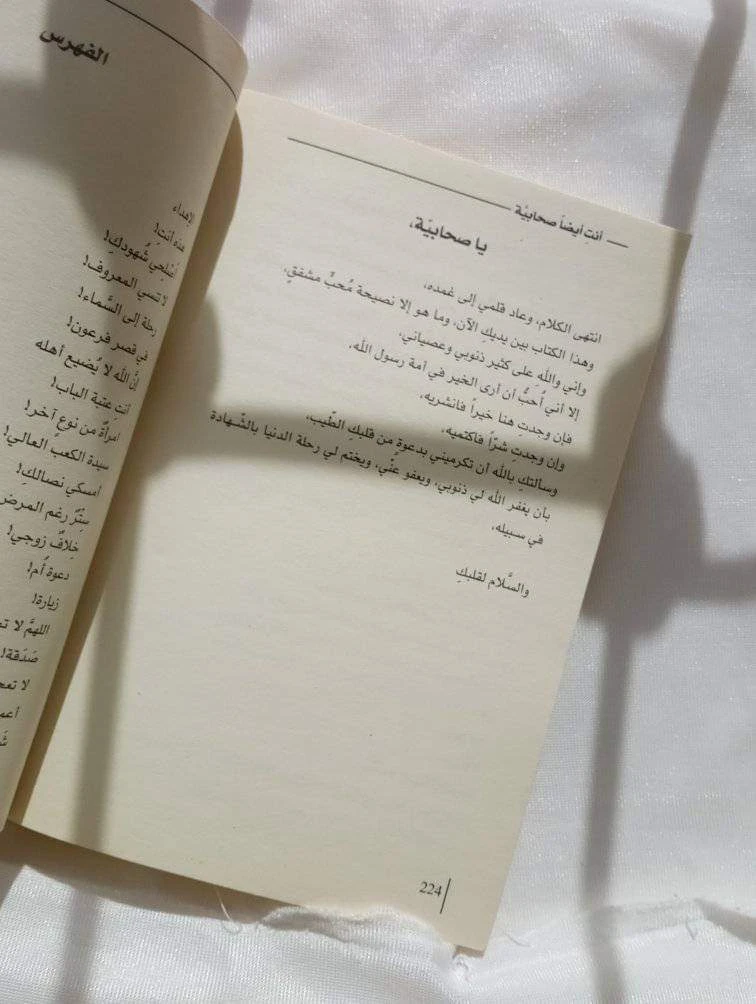 أنتِ أيضاً صحابيّة
يا صحابيّة،
انتهى الكلام، وعاد قلمي إلى غمده،
وهذا الكتاب بين يديكِ الآن، وما هو إلا نصيحة مُحبٍّ مشفقٍ،
وإني واللهِ على كثير ذنوبي وعصياني،
إلا أني أُحبُّ أن أرى الخير في أمة رسول الله،
فإن وجدتِ هنا خيراً فانشريه،
وإن وجدتِ شرّاً فاكتميه،
وسألتكِ بالله أن تكرميني بدعوةٍ من قلبكِ الطّيب،
بأن يغفر الله لي ذنوبي، ويعفو عنّي، ويختم لي رحلة الدنيا بالشّهادة
في سبيله،
والسَّلام لقلبكِ
224
الفهرس
الإهداء
هذه أنتِ!
أصْلِحي شُهودكِ!
لا تنسي المعروف!
رحلة إلى السَّماء!
في قصر فرعون!
إنَّ الله لا يُضيع أهله
أنتِ عتبة الباب!
امرأةٌ من نوع آخر!
سيدة الكعب العالي!
أمسكي نصالكِ!
سِتْرٌ رغم المرض
خِلافٌ زوجي!
دعوة أم!
زيارة!
اللهمَّ لا
صَدَقة!
لا